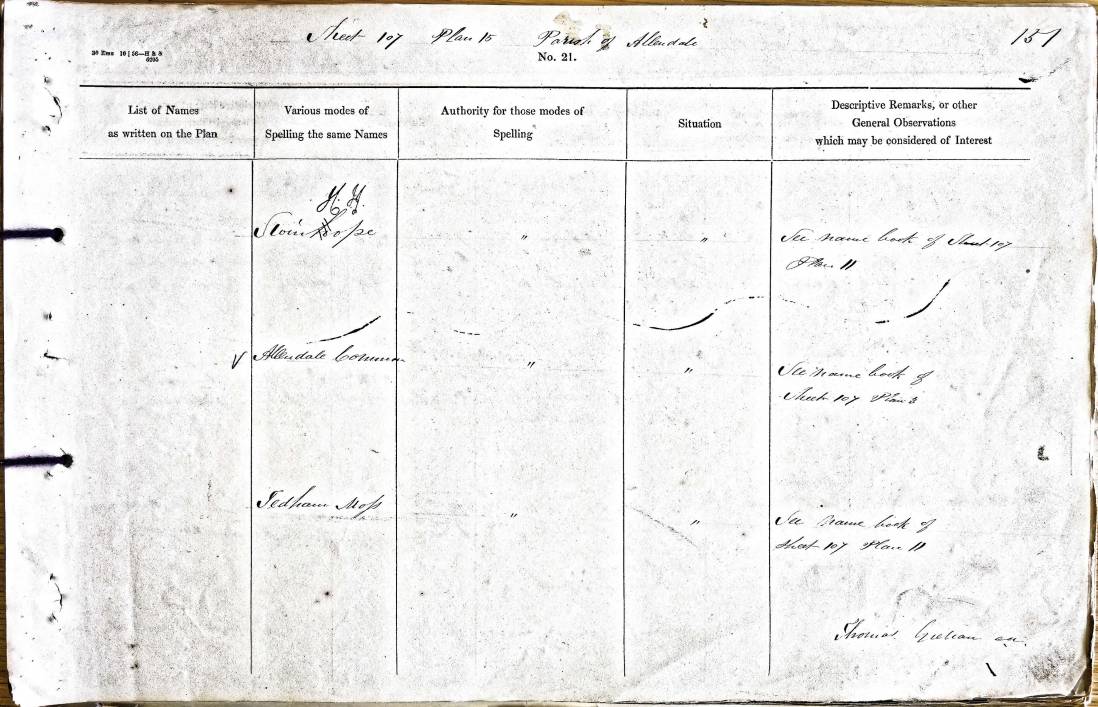 Sheet 107 Plan 15 Parish of Allendale 151
No. 21.
List of Names
as written on the Plan
Various modes of
Spelling the same Names
Authority for those modes of
Spelling
Situation
Descriptive Remarks, or other
General Observations
which may be considered of Interest
H. H.
Swinhope " " See name book of Sheet 107
Plan 11
√ Allendale Common " " See name book of
Sheet 107 Plan
Tedham Moss " " See name book of
Sheet 107 Plan 11
Thomas